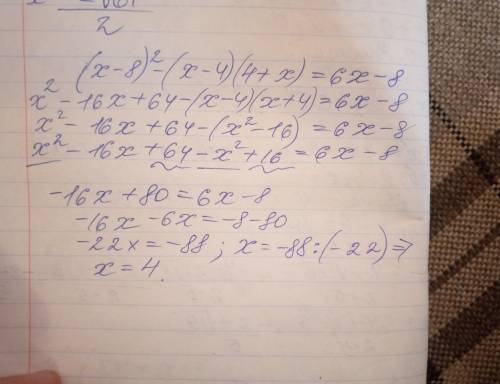 2
(x-8)²-(x-4)(4+x)=6x-8
x²-16x+64-(x-4)(x+4)=6x-8
x²-16x+64-(x²-16)=6x-8
x²-16x+64-x²+16=6x-8
-16x+80=6x-8
-16x-6x=-8-80
-22x=-88; x=-88:(-22)⇒
x=4.